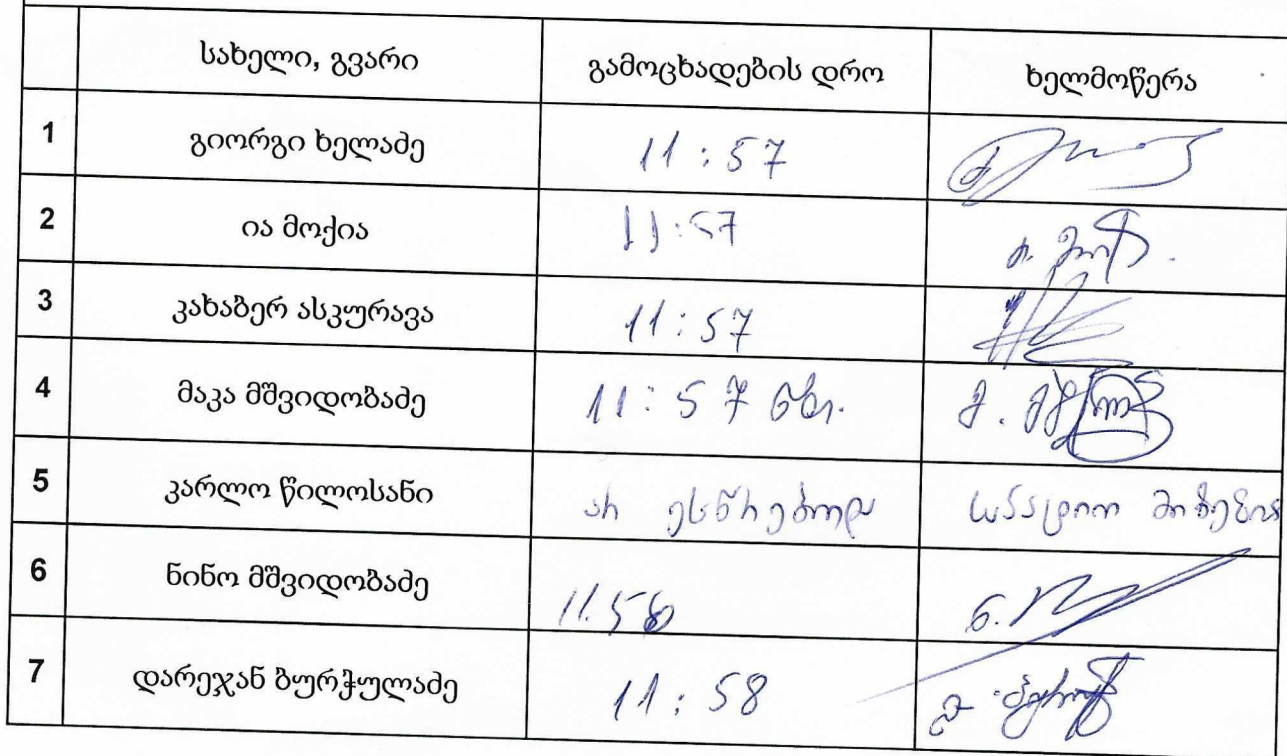 სახელი, გვარი გამოცხადების დრო ხელმოწერა
1 გიორგი ხელაძე 11:57
2 ია მოქია 11:57
3 კახაბერ ასკურავა 11:57
4 მაკა მშვიდობაძე 11:57 წთ.
5 კარლო წილოსანი არ ესწრებოდა საპატიო მიზეზით
6 ნინო მშვიდობაძე
7 დარეჯან ბურჭულაძე 11:58